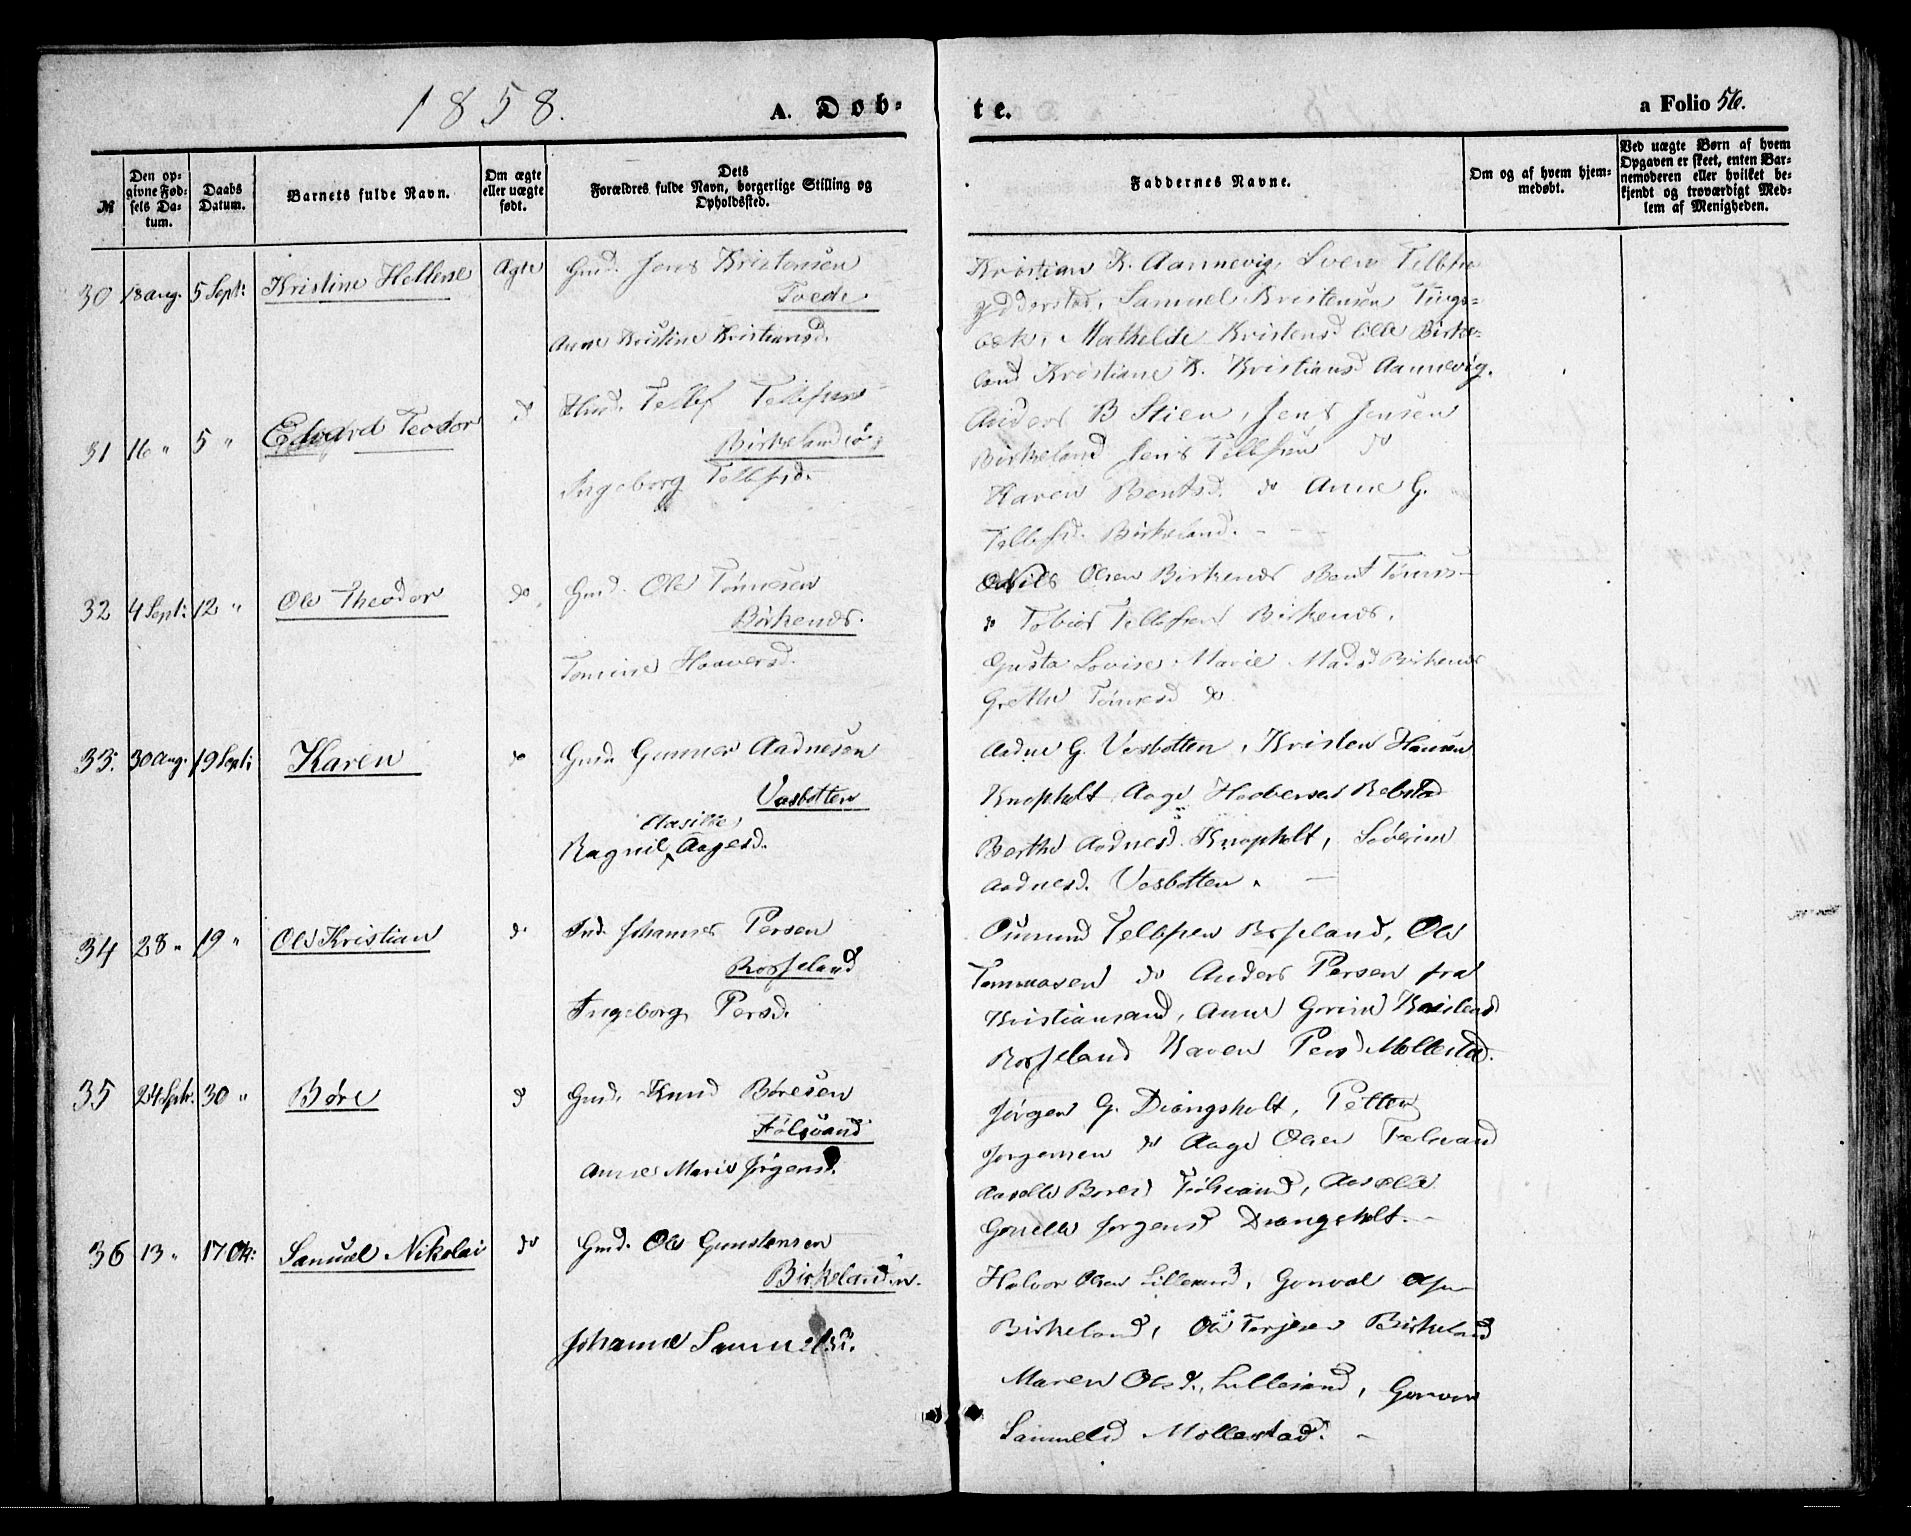 1858.
A. Dob-
te.
a Folio 56.
№
Den op-
givne Fød-
sels Da-
tum.
Daabs
Datum.
Barnets fulde Navn.
Om ægte
eller uægte
født.
Dets
Forældres fulde Navn, borgerlige Stilling og
Opholdssted.
Faddernes Navne.
Om og af hvem hjem-
medøbt.
Ved uægte Børn af hvem
Opgaven er skeet, enten Bar-
nemoderen eller hvilket be-
kjendt og troværdigt Med-
lem af Menigheden.
30 18 aug. 5 Sept: Kristine Hellene Ægte Gmd. Jens Kristensen
Tvede
Anne Kristine Kristiansd.
Kristian K. Aannevig, Sven
Samuel Kristensen Tings-
bæk, Mathelde Kristensd Birke-
land Kristiane K. Kristiansd Aannevig.
31 16 " 5 " Edvard Teodor d Tellef Tellefsen
Birkeland
Ingeborg Tellefsd.
Anders B Stien, Jens Jensen
Birkeland Jens Tellefsen do
Karen Bentsd. do Anne G.
Tellefsd. Birkeland.
32 4 Sept: 12 " Ole Theodor do Gmd. Ole Tømesen
Birkenes.
Tomine Haaversd.
Nils Olsen Birkenes Bent Tømes-
do Tobias Tellefsen Birkenes.
Gusta Lovise Marie Madsd Birkenes
Grethe Tømesd do
33. 30 Aug. 19 Sept: Karen do Gmd Gunner Aadnesen
Vasbotten
Aasille
Ragnil Aagesd.
Aadne G. Vasbotten, Kristen Hansen
Knapholt Aage Rebstad
Berthe Aadnesd. Knapholt, Severine
Aadnesd. Vasbotten.
34 28 " 19 " Ole Kristian d Ind. Johannes Persen
Rosseland
Ingeborg Persd.
Gumund Tellefsen Rosseland, Ole
Tommasen do Anders Persen fra
Kristiansand, Anne Gorine
Rosseland Karen Persd Mollestad.
35 24 Sptr. 30 " Børe d Gmd. Knud Børesen
Fölsvand
Anne Marie Jørgensd.
Jørgen G. Drangsholt, Petter
Jørgensen do Aage Olsen
Aaselle Boresd
Jørgensd Drangsholt.
36 13 " 17 Okt: Samuel Nikolai do Gmd. Ole Gunstensen
Birkeland n.
Johanne Samuelsd.
Halvor Olsen Lillesand, Gonval
Birkeland, Ole Terjesen Birkeland
Maren Olsd., Lillesand,
Samuelsd Mollestad.